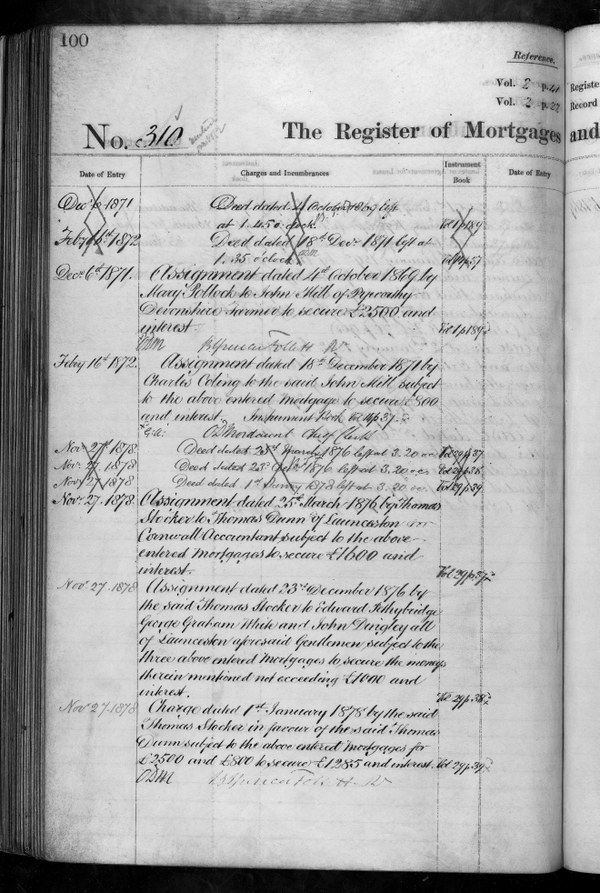 100
Reference.
Vol. 2 p. 41
Vol. 2 p. 22
No. 310
The Register of Mortgages
and
Registe
Record
Date of Entry
Charges and Incumbrances
Instrument Book
Date of Entry
Decr 6 1871 Deed dated 4 October 1869 left
at 1.45 o'clock Vol 1 p 189
Feby 16th 1872 Deed dated 18th Decr 1871 left at
1.35 o'clock
Decr 6th 1871. Assignment dated 4th October 1869 by
Mary Pollock to John Hill of Pyworthy
Devonshire Farmer to secure £2500 and
interest Vol 1 p 189
ODM B Spencer Follett Rr
Feby 16th 1872. Assignment dated 18th December 1871 by
Charles Coling to the said John Hill subject
to the above entered Mortgage to secure £800
and interest. Instrument Book Vol 4 p 37
O D Mordaunt Chief Clerk
Nov. 27th 1878 Deed dated 25th March 1876 left at 3.20 o.c. Vol 29 p 37
Nov. 27. 1878 Deed dated 23rd 1876 left at 3.20 o.c. Vol 29 p 38
Nov. 27 1878 Deed dated 1st January 1878 left at 3.20 o.c. Vol 29 p 39
Nov. 27. 1878 Assignment dated 25th March 1876 by Thomas
Stocker to Thomas Dunn of Launceston
Cornwall Accountant subject to the above
entered Mortgages to secure £1600 and
interest. Vol 29 p 37
Nov. 27 1878 Assignment dated 23rd December 1876 by
the said Thomas Stocker to Edward Pethybridge
George Graham White and John Dingley all
of Launceston aforesaid Gentlemen subject to the
three above entered Mortgages to secure the moneys
therein mentioned not exceeding £1000 and
interest. Vol 29 p 38
Nov. 27. 1878 Charge dated 1st January 1878 by the said
Thomas Stocker in favour of the said Thomas
Dunn subject to the above entered Mortgages for
£2500 and £800 to secure £1285 and interest. Vol 29 p 39
ODM B Spencer Follett Rr